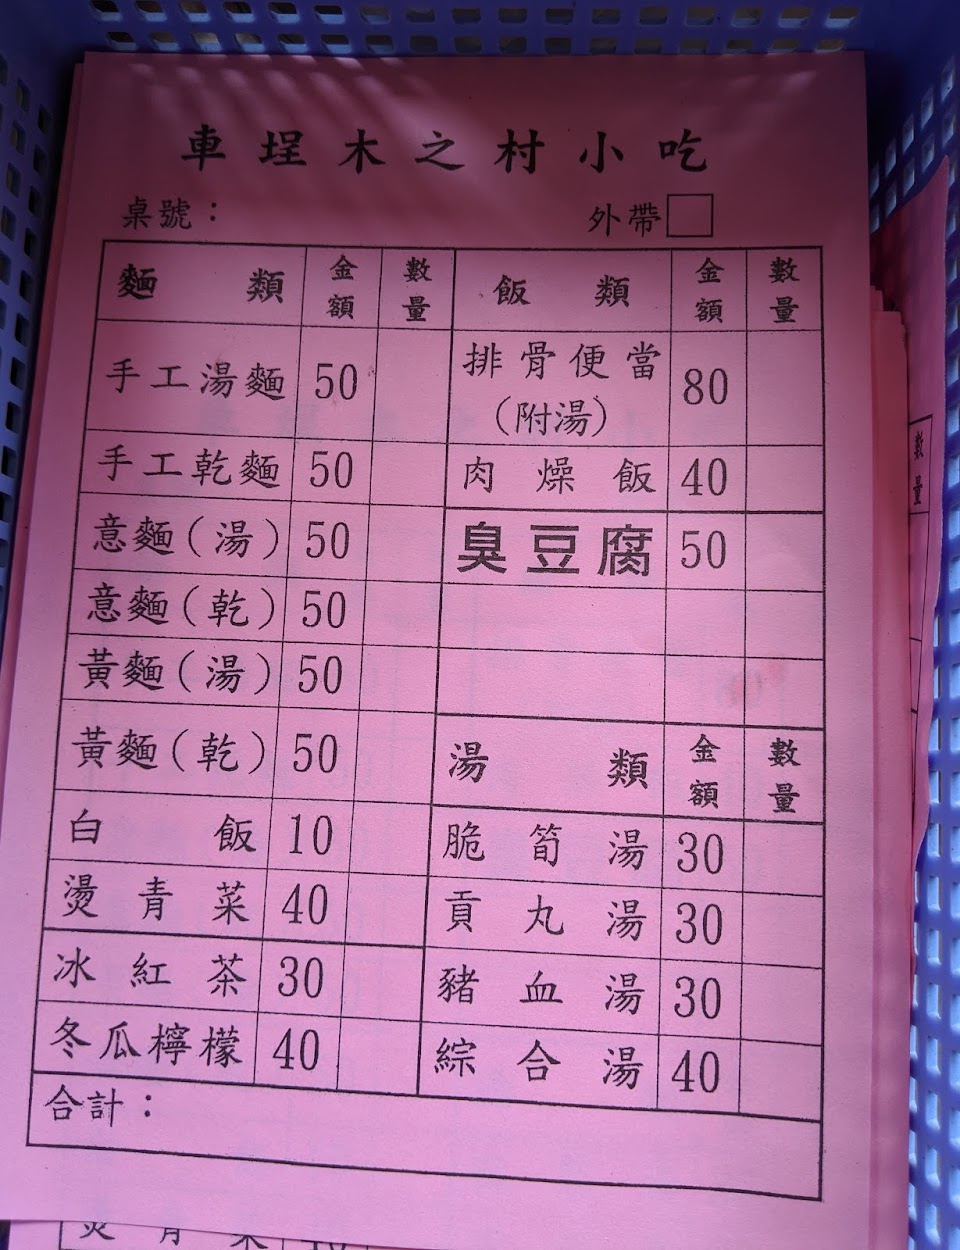 車埕木之村小吃
桌號：
外帶
麵類 金額 數量
手工湯麵 50
手工乾麵 50
意麵(湯) 50
意麵(乾) 50
黃麵(湯) 50
黃麵(乾) 50
白飯 10
燙青菜 40
冰紅茶 30
冬瓜檸檬 40
飯類 金額 數量
排骨便當
(附湯) 80
肉燥飯 40
臭豆腐 50
湯類 金額 數量
脆筍湯 30
貢丸湯 30
豬血湯 30
綜合湯 40
合計：
數量
燙青菜 40